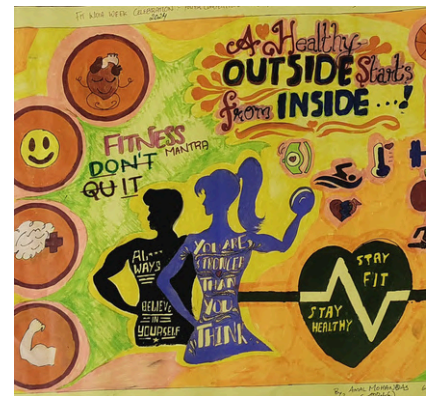 FIT INDIA WEEK CELEBRATION
2024
A Healthy
OUTSIDE Starts
from INSIDE ...!
FITNESS
MANTRA
DON'T
QUIT
AL
WAYS
BELIEVE
IN
YOURSELF
YOU ARE
STRONGER
THAN
YOU
THINK
STAY
FIT
STAY
HEALTHY
By,